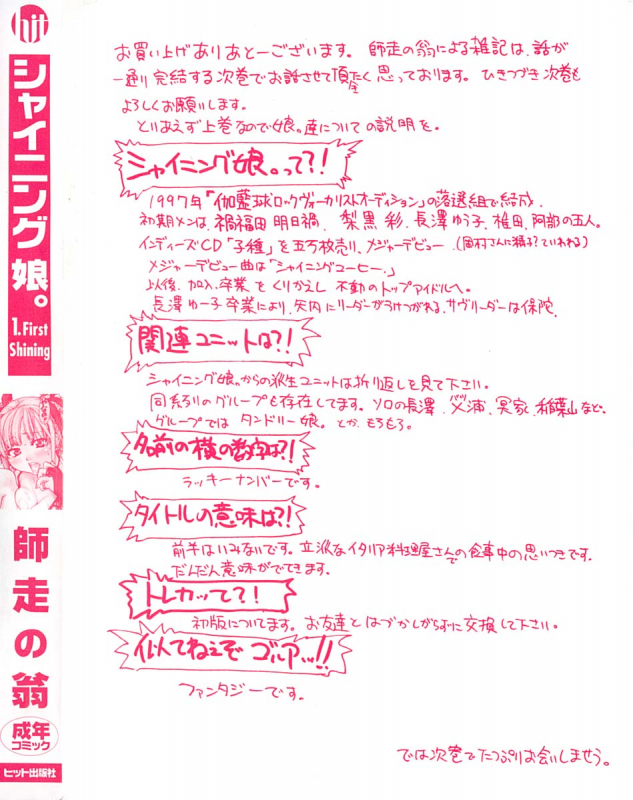 hit
シャイニング娘。
1.First
Shining
師走の翁
成年
コミック
ヒット出版社
お買い上げありあとーございます。師走の翁による雑記は、話が
一通り完結する次巻でお話させて頂たく思っております。ひきつづき次巻も
全
よろしくお願いします。
とりあえず上巻なので娘。達についての説明を。
シャイニング娘。って?!
1997年「伽藍球ロックヴォーカリストオーディション」の落選組で結成、
初期メンは、禍福田明日禍、梨黒彩、長澤ゆう子、椎田、阿部の五人。
インディーズCD「子種」を五万枚売り、メジャーデビュー、(岡村さんに精子?ていわれる)
メジャーデビュー曲は「シャイニングコーヒー。」
以後、加入、卒業をくりかえし不動のトップアイドルへ。
長澤ゆー子卒業により、矢内にリーダーがうけつがれる、サヴリーダーは保陀、
関連ユニットは?!
シャイニング娘。からの派生ユニットは折り返しを見て下さい。
同系列のグループも存在してます。ソロの長澤、浦、冥家、稲葉山など、
グループではタンドリー娘。とか、もろもろ。
名前の横の数字は?!
ラッキーナンバーです。
タイトルの意味は?!
前半はいみないです。立派なイタリア料理屋さんでの食事中の思いつきです。
だんだん意味がでてきます。
トレカッてて?!
初版についてます。お友達とはづかしがらずに交換して下さい。
似てねぇぞゴルアッ!!
ファンタジーです。
では次巻でたっぷりお会いしませう。